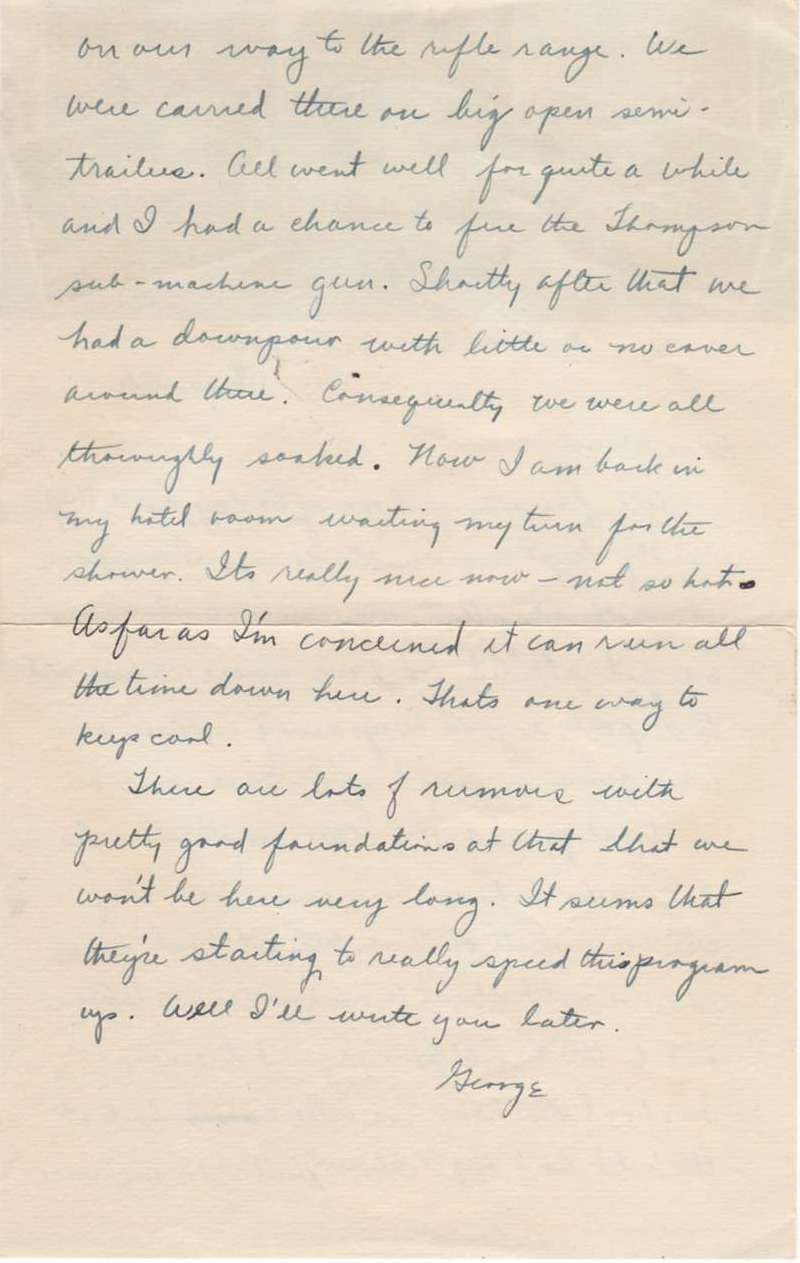 on our way to the rifle range. We
were carried there on big open semi-
trailers. All went well for quite a while
and I had a chance to fire the Thompson
sub-machine gun. Shortly after that we
had a downpour with little or no cover
around there. Consequently we were all
thoroughly soaked. Now I am back in
my hotel room waiting my turn for the
shower. Its really nice now - not so hot.
As far as I'm concerned it can rain all
the time down here. Thats one way to
keep cool.
There are lots of rumors with
pretty good foundations at that that we
won't be here very long. It seems that
they're starting to really speed this program
up. Well I'll write you later.
George